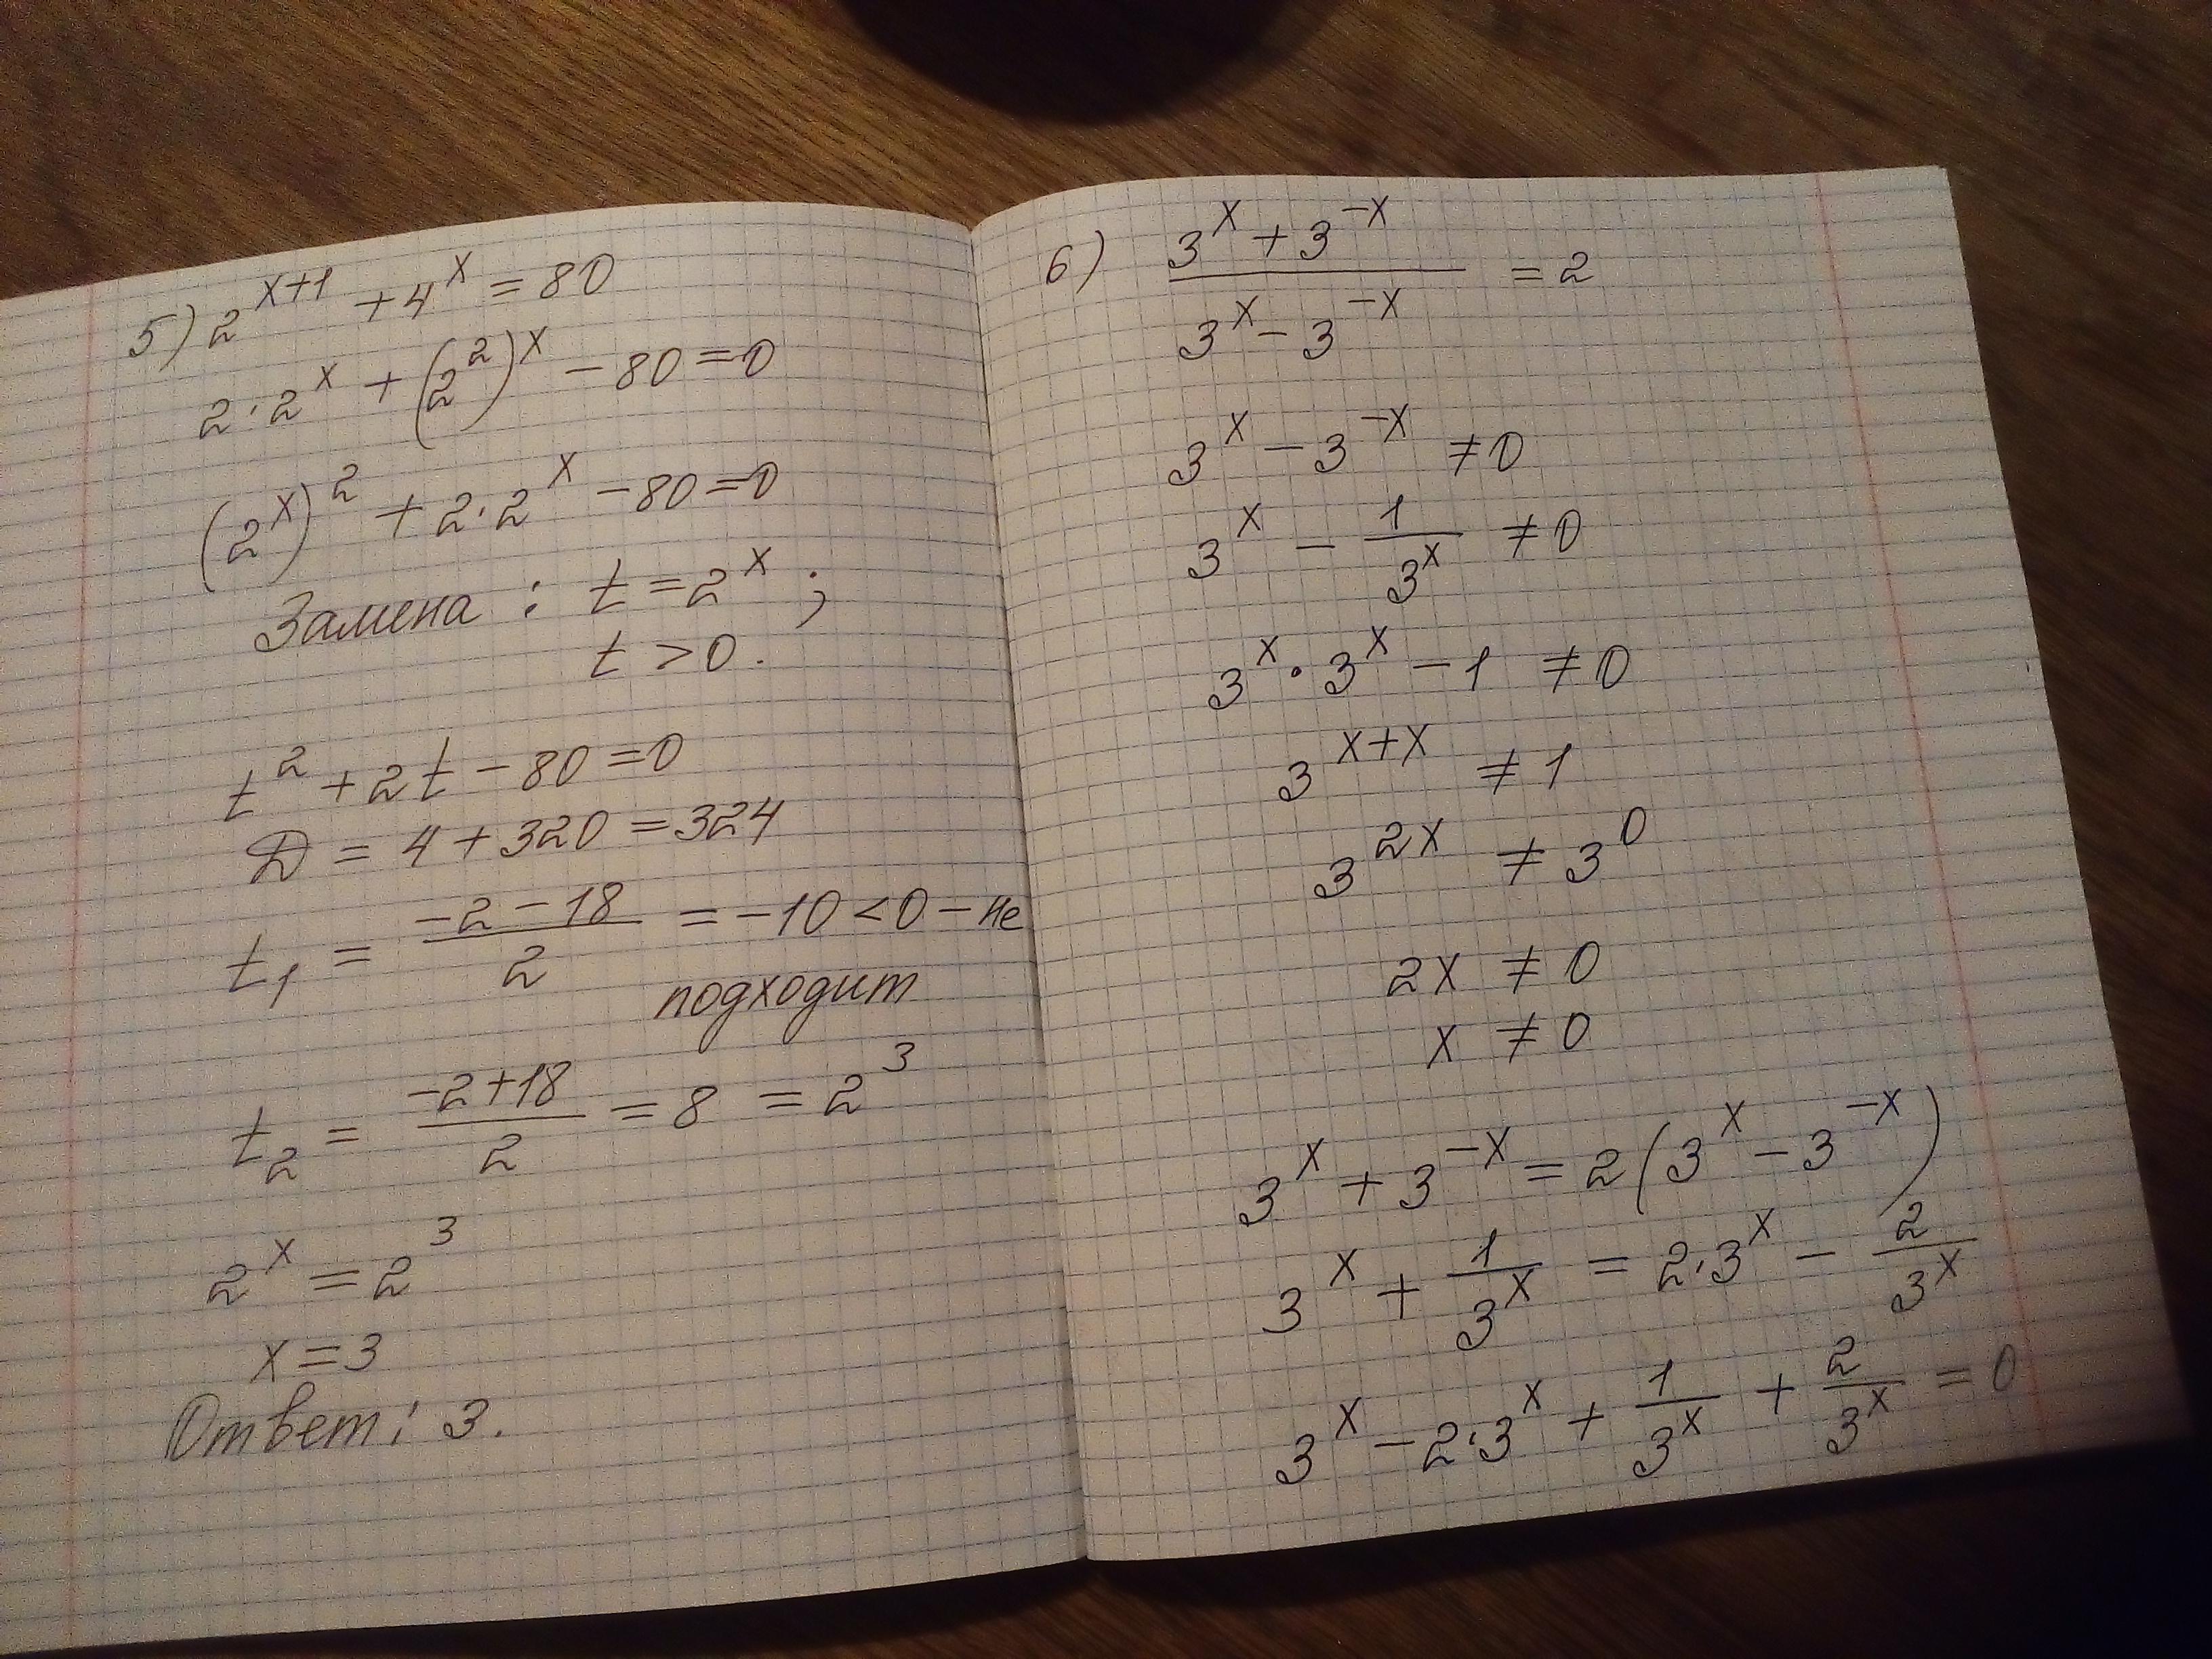 5) 2^(x+1) + 4^x = 80
2·2^x + (2^2)^x − 80 = 0
(2^x)^2 + 2·2^x − 80 = 0
Замена: t = 2^x;
t > 0.
t^2 + 2t − 80 = 0
D = 4 + 320 = 324
t₁ = (−2 − 18)/2 = −10 < 0 − не
подходит
t₂ = (−2 + 18)/2 = 8 = 2^3
2^x = 2^3
x = 3
Ответ: 3.
6) (3^x + 3^(−x))/(3^x − 3^(−x)) = 2
3^x − 3^(−x) ≠ 0
3^x − 1/3^x ≠ 0
3^x · 3^x − 1 ≠ 0
3^(x+x) ≠ 1
3^(2x) ≠ 3^0
2x ≠ 0
x ≠ 0
3^x + 3^(−x) = 2(3^x − 3^(−x))
3^x + 1/3^x = 2·3^x − 2/3^x
3^x − 2·3^x + 1/3^x + 2/3^x = 0